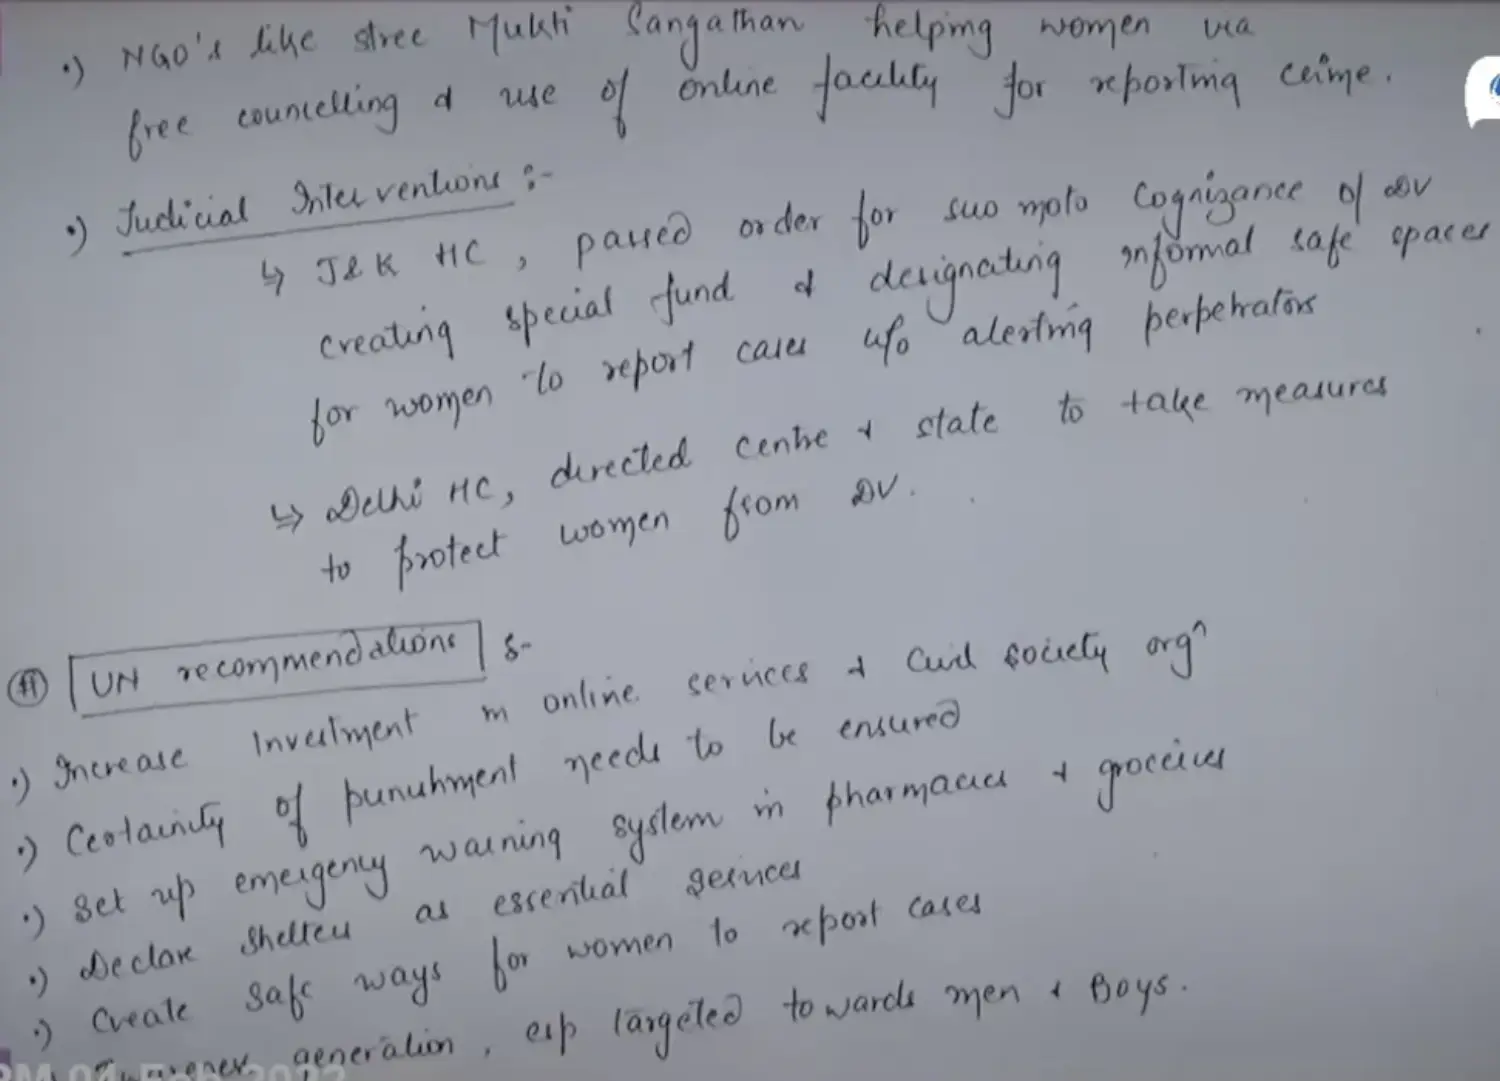 •) NGO's like stree Mukti Sangathan helping women via
free councelling & use of online facility for reporting crime.
•) Judicial Interventions :-
↳ J&K HC, passed order for suo moto Cognizance of DV
creating special fund & designating informal safe spaces
for women to report cases w/o alerting perpetrators
↳ Delhi HC, directed centre & state to take measures
to protect women from DV.
UN recommendations :-
•) Increase Investment in online services & Civil society orgⁿ
•) Certainity of punishment needs to be ensured
•) Set up emergency warning system in pharmacies & groceries
•) Declare shelters as essential services
•) Create safe ways for women to report cases
generation, esp targeted towards men & Boys.